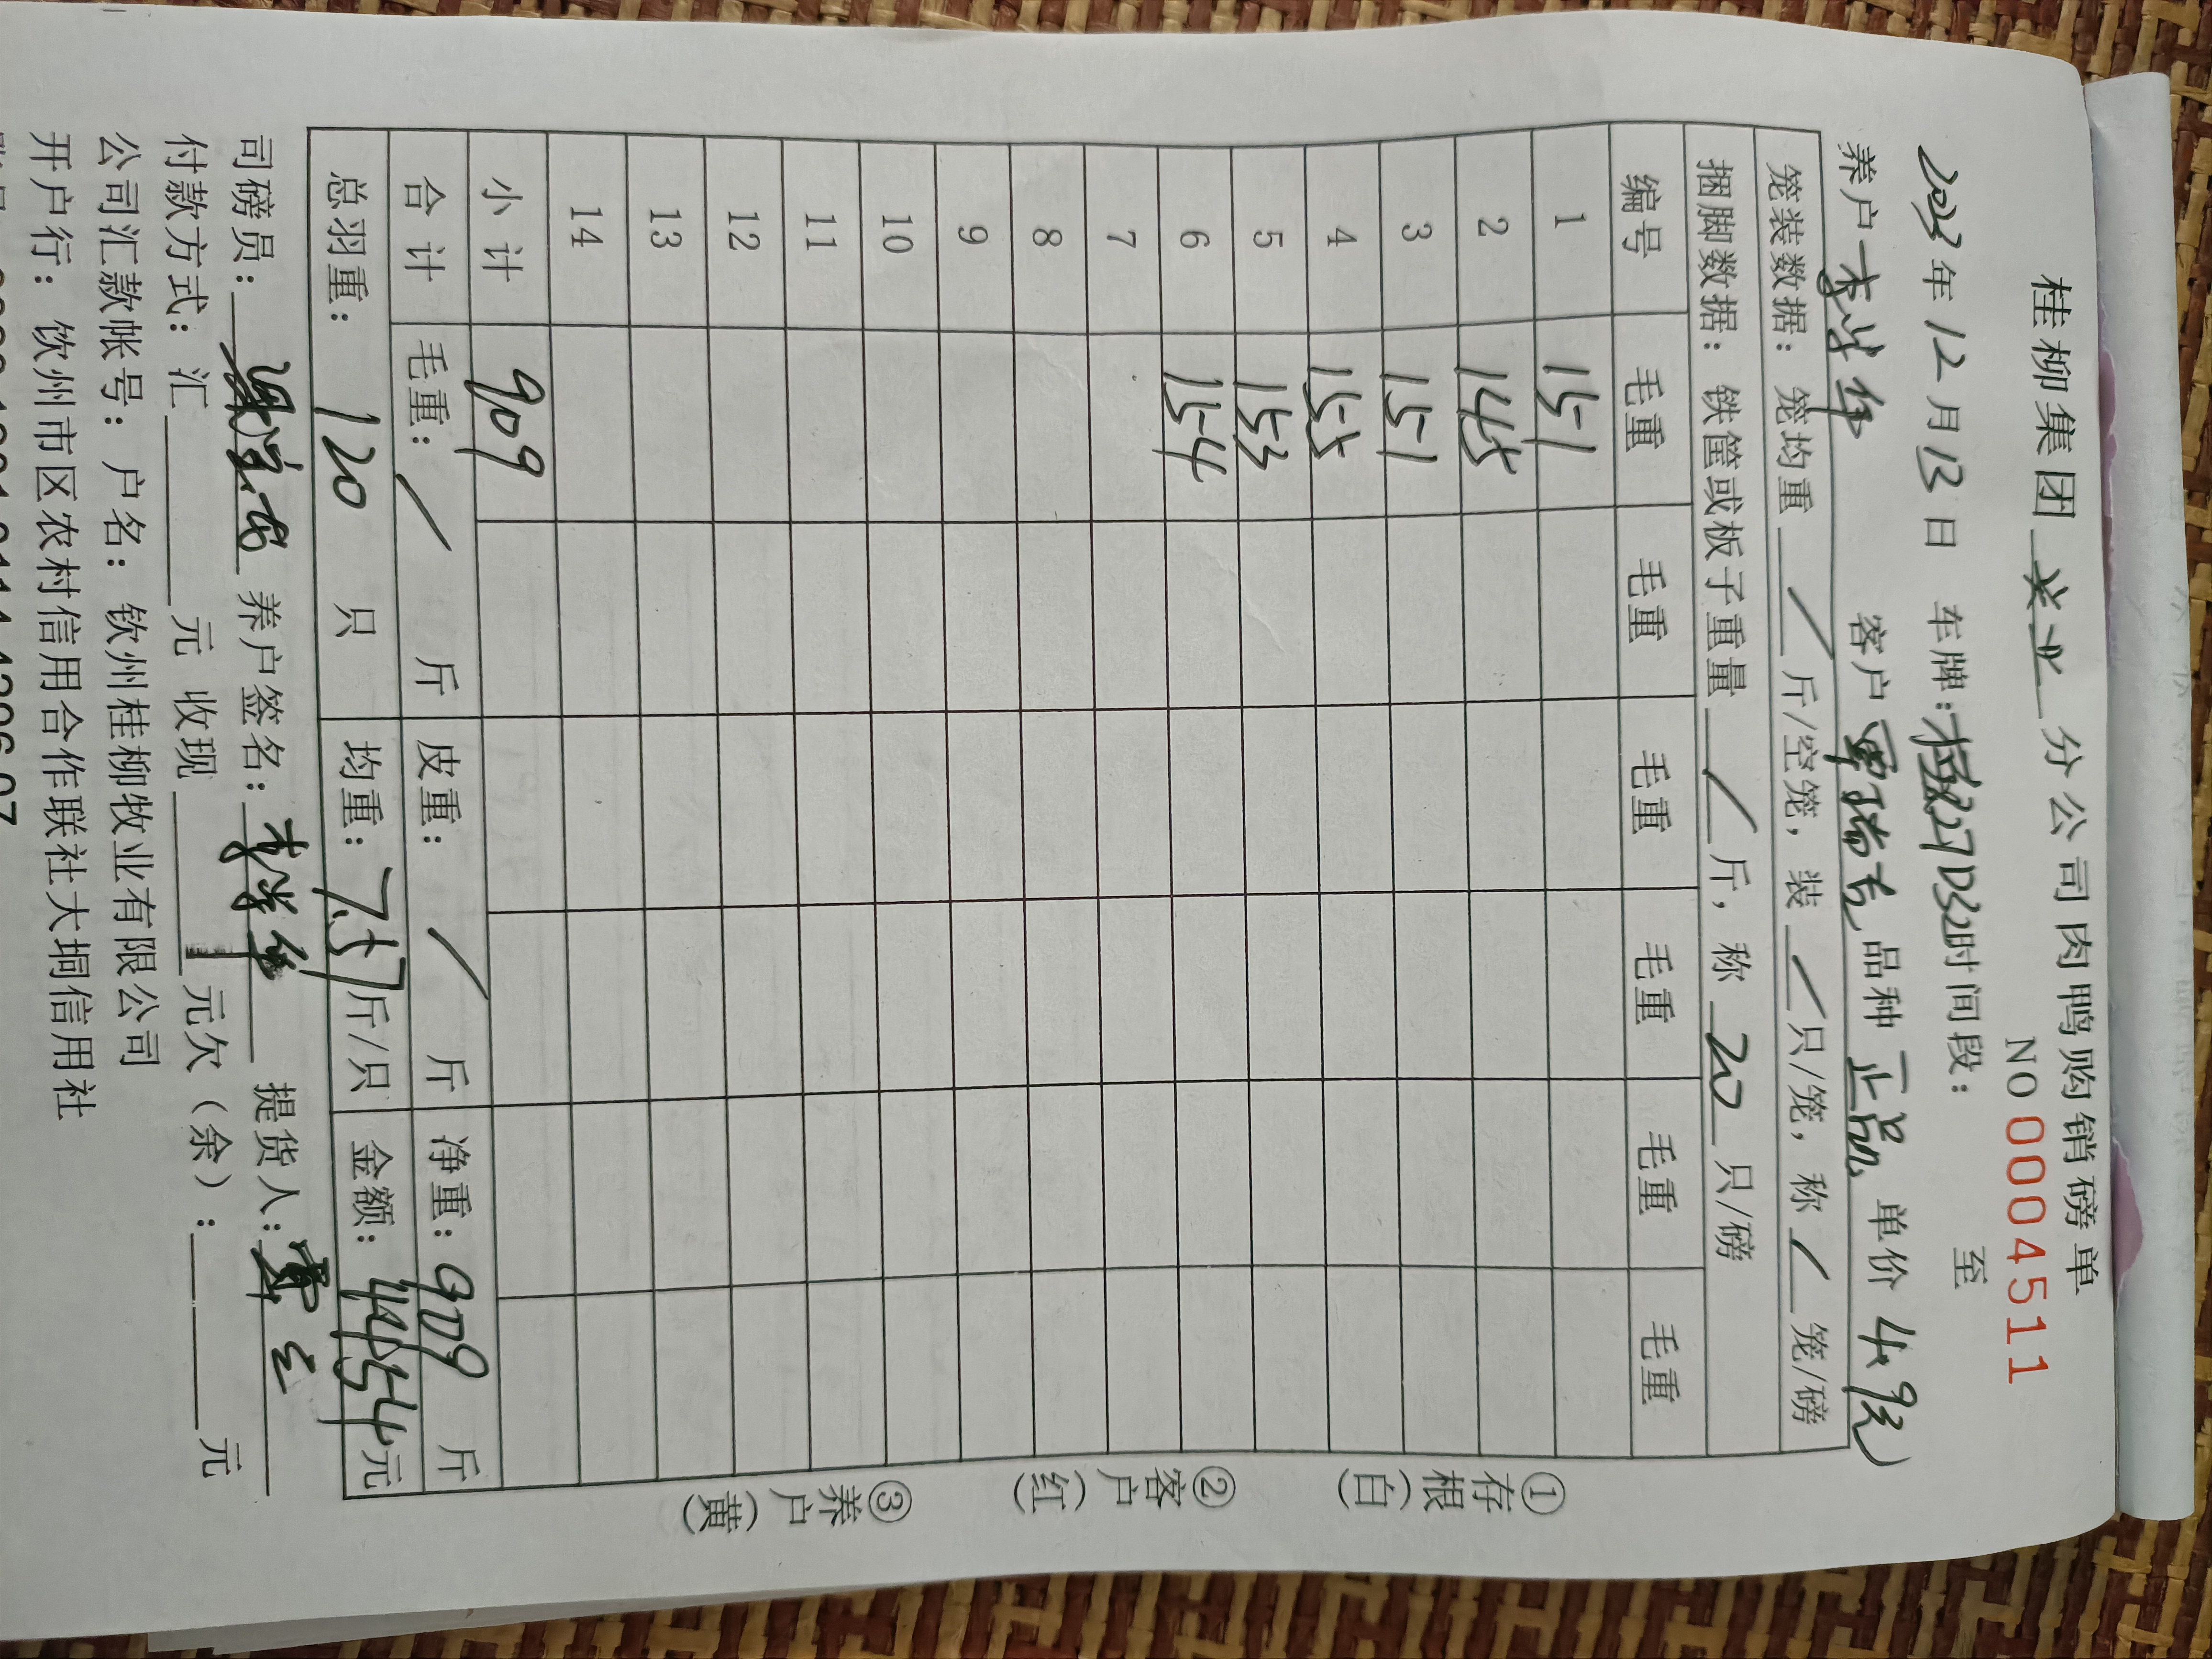 桂柳集团 兴业 分公司肉鸭购销磅单
NO 0004511
2023年12月13日 车牌: 227D32 时间段: 至
养户 李学华 客户 覃瑞吉 品种 正品 单价 4.9
笼装数据: 笼均重 / 斤/空笼, 装 / 只/笼, 称 / 笼/磅
捆脚数据: 铁筐或板子重量 / 斤, 称 20 只/磅
编号 毛重 毛重 毛重 毛重 毛重 毛重
1 151
2 145
3 151
4 155
5 153
6 154
7
8
9
10
11
12
13
14
小计 909
合计 毛重: / 斤 皮重: / 斤 净重: 909 斤
总羽重: 120 只 均重: 7.57 斤/只 金额: 4454元
①存根(白) ②客户(红) ③养户(黄)
司磅员: 养户签名: 李学华 提货人: 覃
付款方式: 汇 元 收现 元欠(余): 元
公司汇款帐号: 户名: 钦州桂柳牧业有限公司
开户行: 钦州市区农村信用合作联社大垌信用社